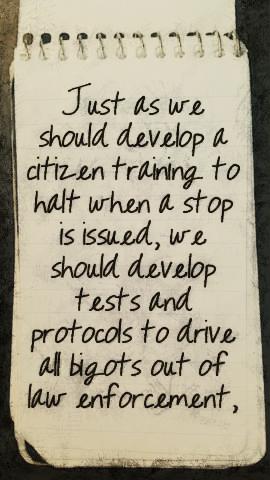 Just as we
should develop a
citizen training to
halt when a stop
is issued, we
should develop
tests and
protocols to drive
all bigots out of
law enforcement,